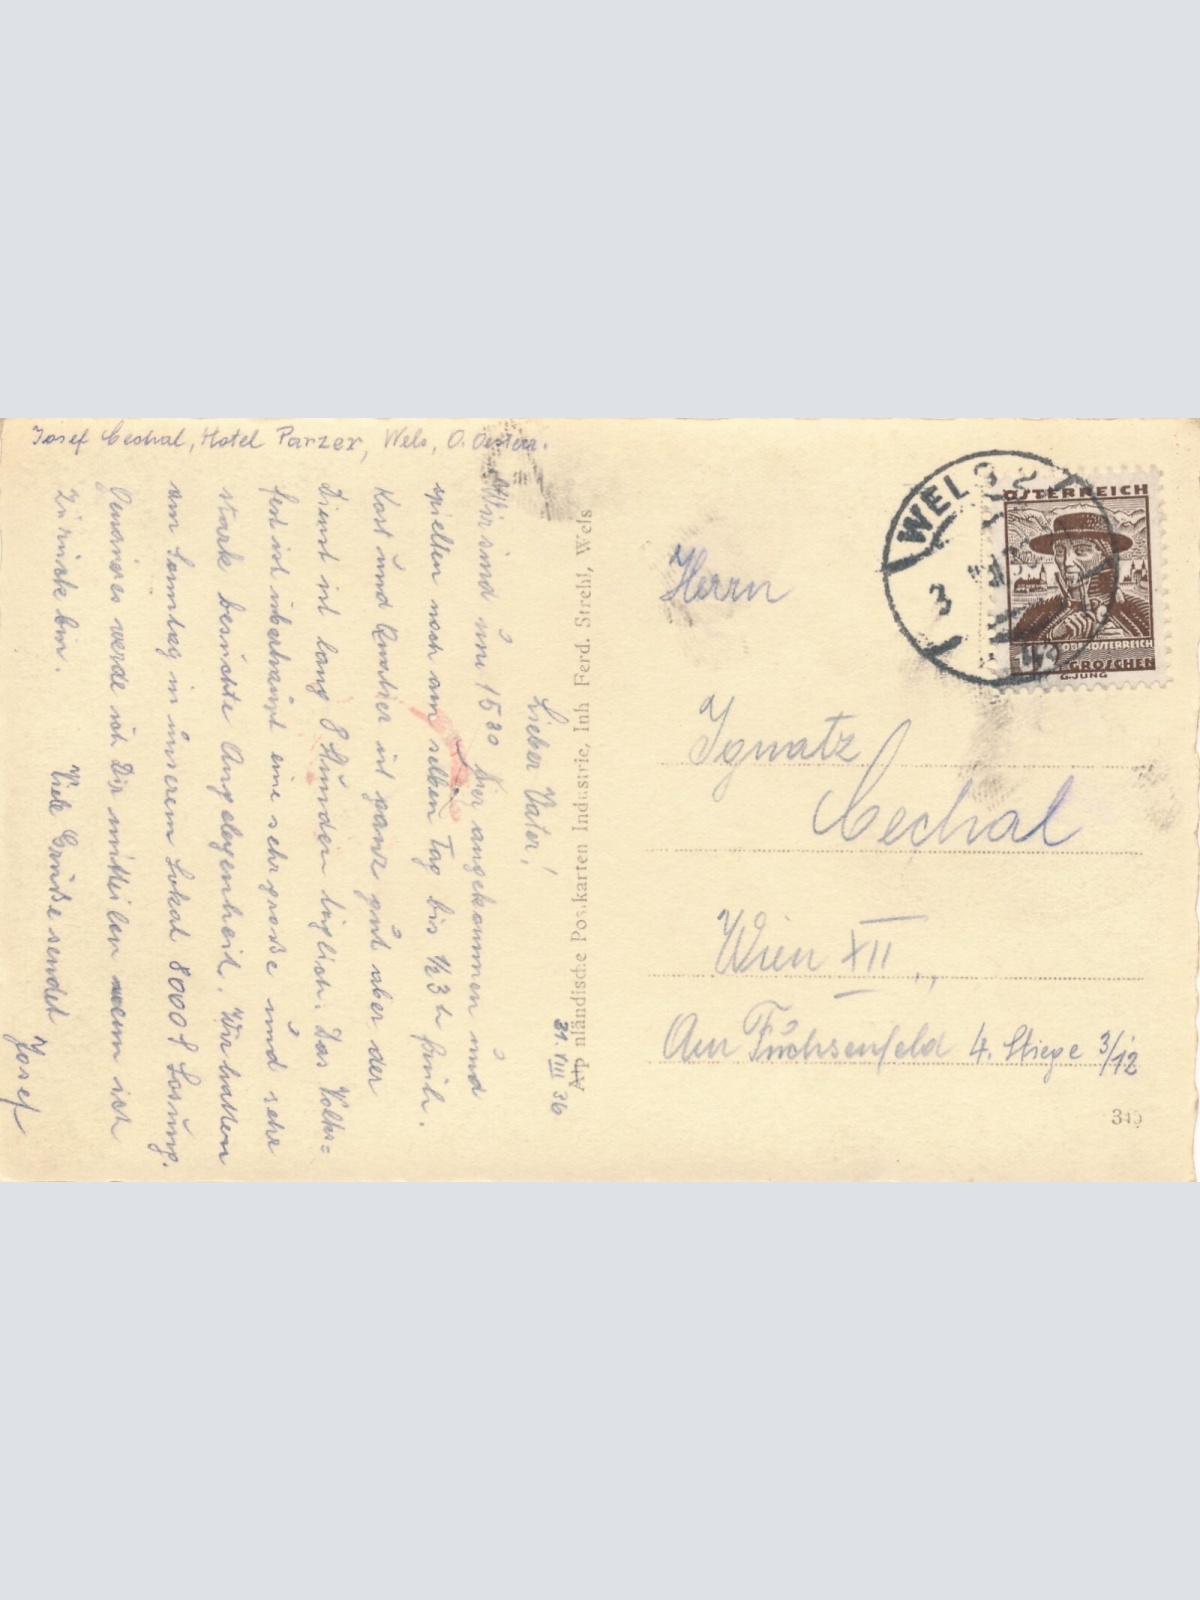 Josef Cechal, Hotel Parzer, Wels, O. Österr.
31. VIII 36
Lieber Vater!
Wir sind um 15 30 hier angekommen und
spielten noch am selben Tag bis ½ 3 h früh.
Kost und Quatier ist ganz gut aber der
Dienst ist lang 8 Stunden täglich. Das Volks=
fest ist überhaupt eine sehr große und sehr
stark besuchte Angelegenheit. Wir hatten
am Sonntag in unserem Lokal 8000 S Losung.
werde ich Dir mitteilen wenn ich
zurück bin.
Viele Grüße sendet
Josef
Alpenländische Postkarten Industrie, Inh Ferd. Strehl, Wels
WELS 2
3
ÖSTERREICH
OBERÖSTERREICH
GROSCHEN
G. JUNG
Herrn
Ignatz
Cechal
Wien XII.,
Am Fuchsenfeld 4. Stiege 3/12
340